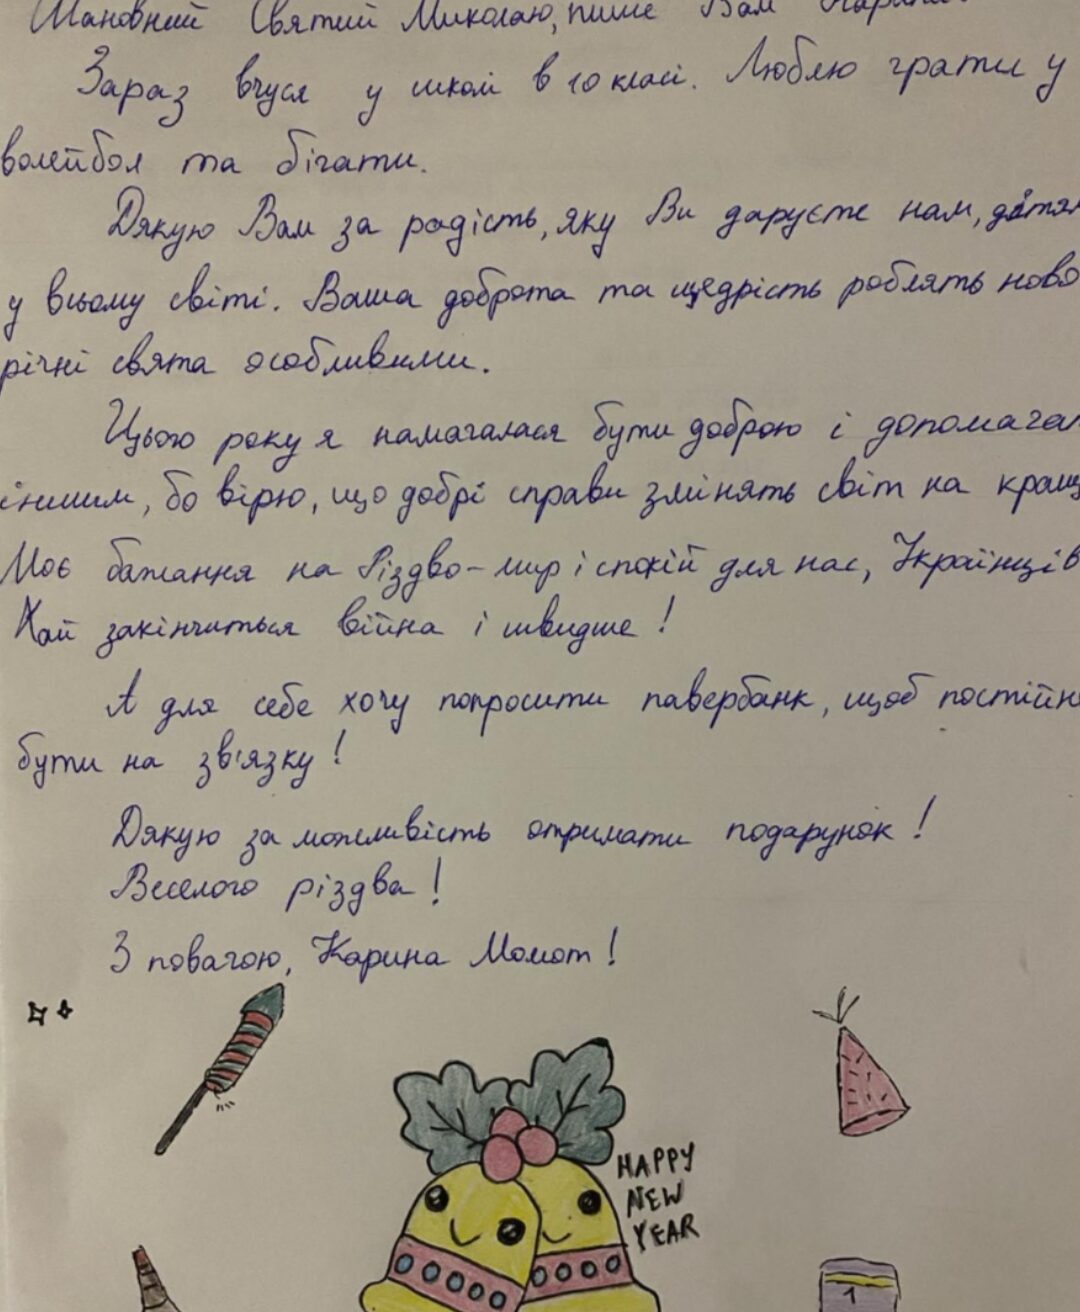 Шановний Святий Миколаю, пише Вам Карина.
Зараз вчуся у школі в 10 класі. Люблю грати у
волейбол та бігати.
Дякую Вам за радість, яку Ви даруєте нам, дітям
у всьому світі. Ваша доброта та щедрість роблять ново
річні свята особливими.
Цього року я намагалася бути доброю і допомагат
іншим, бо вірю, що добрі справи змінять світ на кращ
Моє бажання на Різдво - мир і спокій для нас, Українців
Хай закінчиться війна і швидше!
А для себе хочу попросити павербанк, щоб постійн
бути на зв'язку!
Дякую за можливість отримати подарунок!
Веселого різдва!
З повагою, Карина Момот!
HAPPY
NEW
YEAR
1